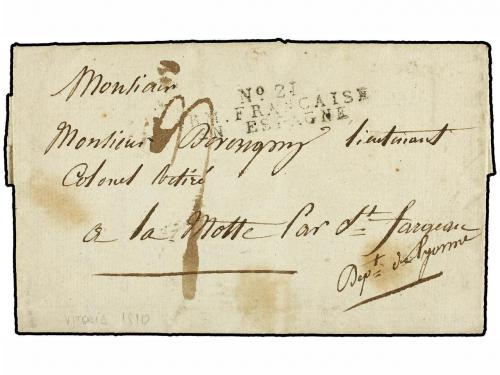 Monsieur
No 21
ARM. FRANÇAISE
EN ESPAGNE
Monsieur Berongny lieutenant
Colonel Retiré
a la Motte Par St. fargeau
Dept. de lyonne
VITORIA 1810